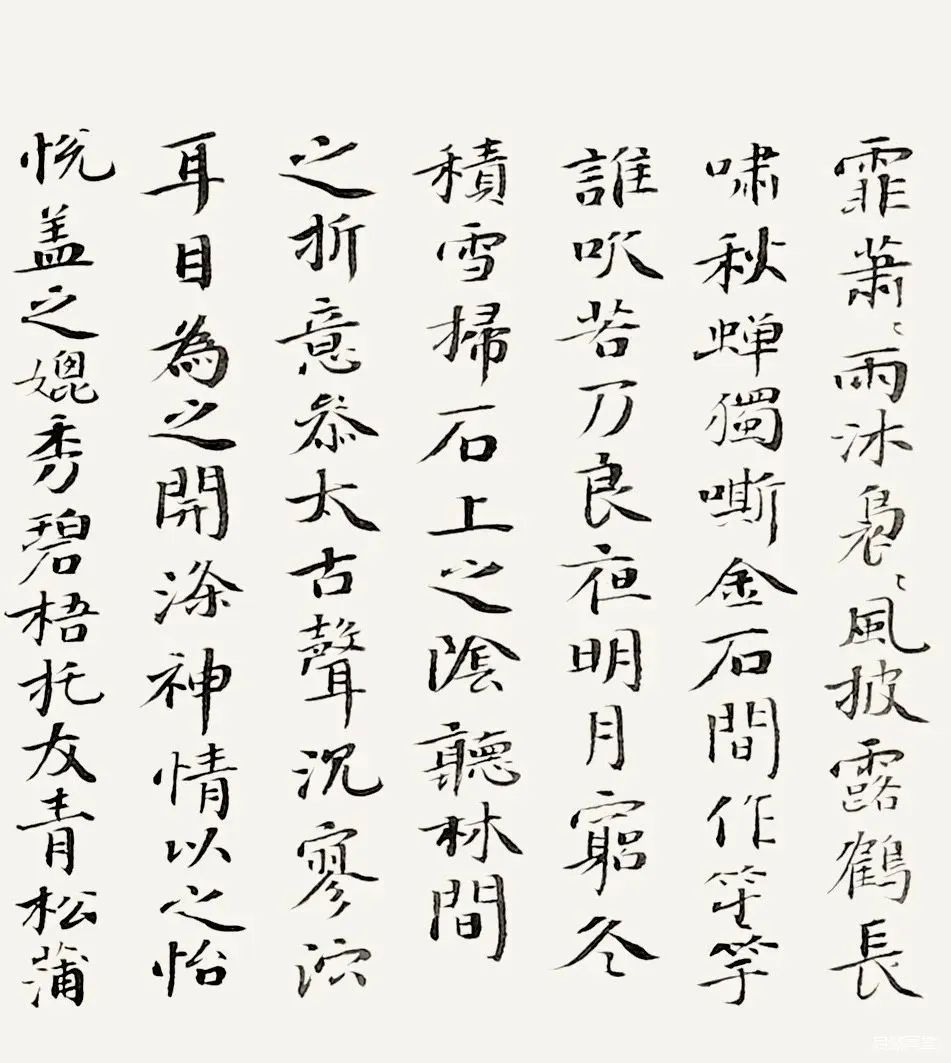 霏蕭〻雨沐裊〻風披露鶴長
嘯秋蟬獨嘶金石間作笙竽
誰吹若乃良夜明月窮冬
積雪掃石上之陰聽林間
之折意參太古聲沉寥泬
耳目為之開滌神情以之怡
悅盖之媲秀碧梧托友青松蒲